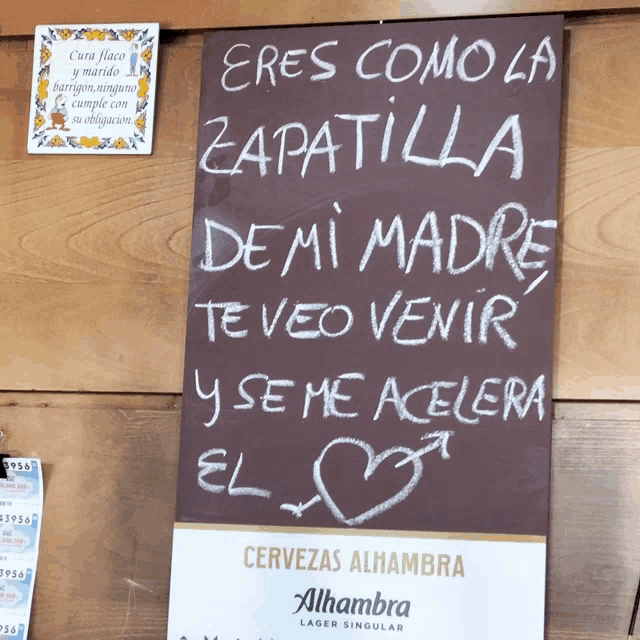 Cura flaco
y marido
barrigón, ninguno
cumple con
su obligacion.
ERES COMO LA
ZAPATiLLA
DE Mi MADRE,
TE VEO VENIR
Y SE ME ACELERA
EL
CERVEZAS ALHAMBRA
Alhambra
LAGER SINGULAR
3956
43956
3956
3956